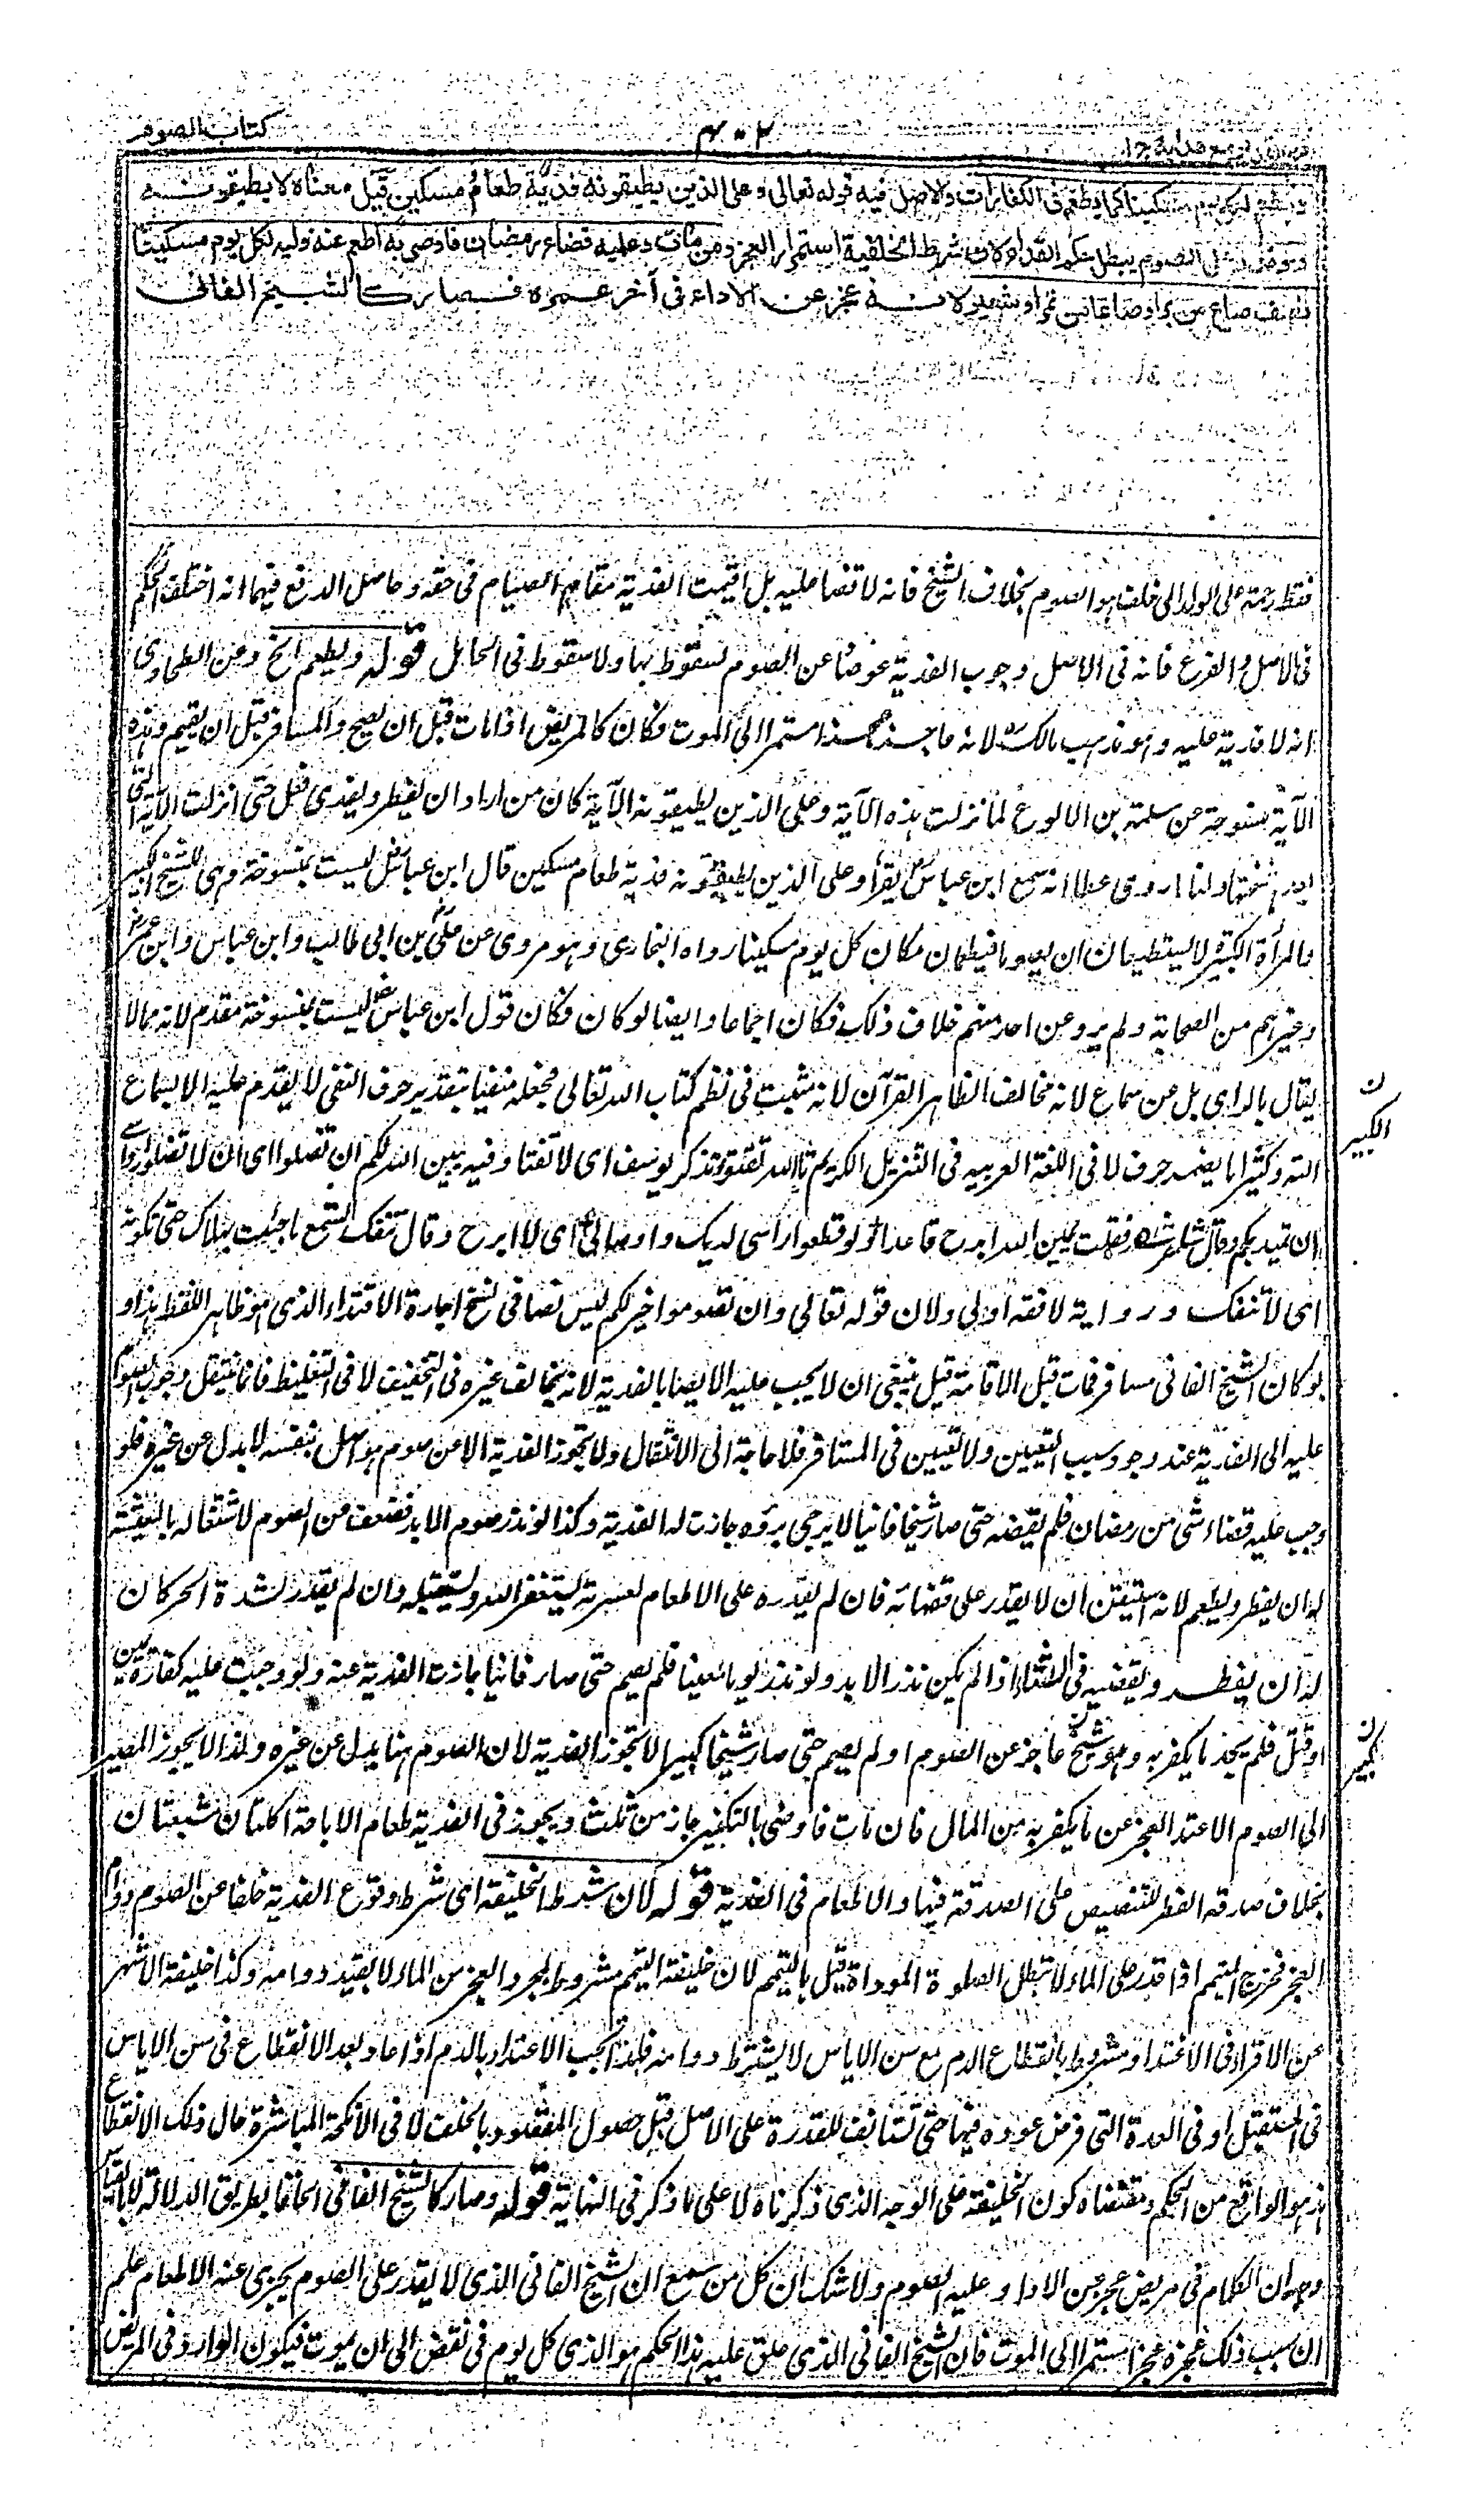 كتاب الصوم
٣٠٢
فتح القدير مع هداية ج١
ويطعم لكل يوم مسكينا كما يطعم فى الكفارات والاصل فيه قوله تعالى وعلى الذين يطيقونه فدية طعام مسكين قيل معناه لا يطيقونه
ولو قدر على الصوم يبطل حكم الفداء لان شرط الخلفية استمرار العجز ومن مات وعليه قضاء رمضان فاوصى به اطعم عنه وليه لكل يوم مسكينا
نصف صاع من بر او صاعا من تمر او شعير لانه عجز عن الاداء فى آخر عمره فصار كالشيخ الفانى
فقط رحمة على الولد الى خلف هو الصوم بخلاف الشيخ فانه لا قضاء عليه بل اقيمت الفدية مقام الصيام فى حقه وحاصل الدفع فيهما انه اختلف الحكم
فى الاصل والفرع فانه فى الاصل وجوب الفدية عوضا عن الصوم لسقوط بها ولا سقوط فى الحامل قوله ويطعم الخ وعن الطحاوى
انه لا فدية عليه وهو مذهب مالك لانه عاجز عجزا استمر الى الموت فكان كالمريض اذا مات قبل ان يصح والمسافر قبل ان يقيم وهذه
الآية منسوخة عن سلمة بن الاكوع لما نزلت هذه الآية وعلى الذين يطيقونه الآية كان من اراد ان يفطر ويفدى فعل حتى انزلت الآية التى
بعدها نسختها ولنا ما روى عطا انه سمع ابن عباس يقرأ وعلى الذين يطيقونه فدية طعام مسكين قال ابن عباس ليست بمنسوخة وهى للشيخ الكبير
والمرأة الكبيرة لا يستطيعان ان يصوما فيطعمان مكان كل يوم مسكينا رواه البخارى وهو مروى عن على بن ابى طالب وابن عباس وابن عمر
وغيرهم من الصحابة ولم يرو عن احد منهم خلاف ذلك فكان اجماعا وايضا لو كان فكان قول ابن عباس ليست بمنسوخة مقدم لانه مما لا
يقال بالراى بل عن سماع لانه مخالف لظاهر القرآن لانه مثبت فى نظم كتاب الله تعالى فجعله منفيا بتقدير حرف النفى لا يقدم عليه الا بسماع
البتة وكثيرا ما يضمر حرف لا فى اللغة العربيه فى التنزيل الكريم تالله تفتؤ تذكر يوسف اى لا تفتأ وفيه يبين الله لكم ان تضلوا اى ان لا تضلوا رواسى
ان تميد بكم وقال الشاعر شعر فقلت يمين الله ابرح قاعدا ولو قطعوا راسى لديك واوصالى اى لا ابرح وقال تنفك تسمع ما حييت بهالك حتى تكونه
اى لا تنفك ورواية الافقه اولى ولان قوله تعالى وان تصوموا خير لكم ليس نصا فى نسخ اجازة الافتداء الذى هو ظاهر اللفظ هذا و
لو كان الشيخ الفانى مسافر فمات قبل الاقامة قيل ينبغى ان لا يجب عليه الايصا بالفدية لانه يخالف غيره فى التخفيف لا فى التغليظ فانما ينتقل وجوب الصوم
عليه الى الفدية عند وجود سبب التعيين ولا تعيين فى المسافر فلا حاجة الى الانتقال ولا تجوز الفدية الا عن صوم هو اصل بنفسه لا بدل عن غيره فلو
وجب عليه قضاء شى من رمضان فلم يقضه حتى صار شيخا فانيا لا يرجى برؤه جازت له الفدية وكذا لو نذر صوم الابد فضعف عن الصوم لاشتغاله بالمعيشة
له ان يفطر ويطعم لانه استيقن ان لا يقدر على قضائه فان لم يقدر على الاطعام لعسرته يستغفر الله ويستقيله وان لم يقدر لشدة الحر كان
له ان يفطر ويقضيه فى الشتاء اذا لم يكن نذر الابد ولو نذر يوما معينا فلم يصم حتى صار فانيا جازت الفدية عنه ولو وجبت عليه كفارة يمين
او قتل فلم يجد ما يكفر به وهو شيخ عاجز عن الصوم او لم يصم حتى صار شيخا كبيرا لا تجوز الفدية لان الصوم هنا بدل عن غيره ولذا لا يجوز المصير
الى الصوم الا عند العجز عن ما يكفر به من المال فان مات فاوصى بالتكفير جاز من ثلثه ويجوز فى الفدية طعام الاباحة اكلتان مشبعتان
بخلاف صدقة الفطر للتنصيص على الصدقة فيها والاطعام فى الفدية قوله لان شرط الخليفة اى شرط وقوع الفدية خلفا عن الصوم دوام
العجز فخرج المتيمم اذا قدر على الماء لا تبطل الصلوة الموداة قبل بالتيمم لان خليفة التيمم مشروط بمجرد العجز عن الماء لا بقيد دوامه وكذا خليفة الاشهر
عن الاقراء فى الاعتداد مشروط بانقطاع الدم مع سن الاياس لا يشترط دوامه فلهذا يجب الاعتداد بالدم اذا عاد بعد الانقطاع فى سن الاياس
فى المستقبل او فى العدة التى فرض عوده فيها حتى تستانف للقدرة على الاصل قبل حصول المقصود بالخلف لا فى الانكحة المباشرة حال ذلك الانقطاع
هذا هو الواقع من الحكم ومقتضاه كون الخليفة على الوجه الذى ذكرناه لا على ما ذكر فى النهاية قوله وصار كالشيخ الفانى الحاقا بطريق الدلالة لا بالقياس
وجه ان الكلام فى مريض عجز عن الاداء وعليه الصوم ولا شك ان كل من سمع ان الشيخ الفانى الذى لا يقدر على الصوم يجزى عنه الاطعام علم
ان سبب ذلك عجزه عجزا مستمرا الى الموت فان الشيخ الفانى الذى علق عليه هذا الحكم هو الذى كل يوم فى نقص الى ان يموت فيكون الوارد فى المريض
ن
الكبير
ن
كبير